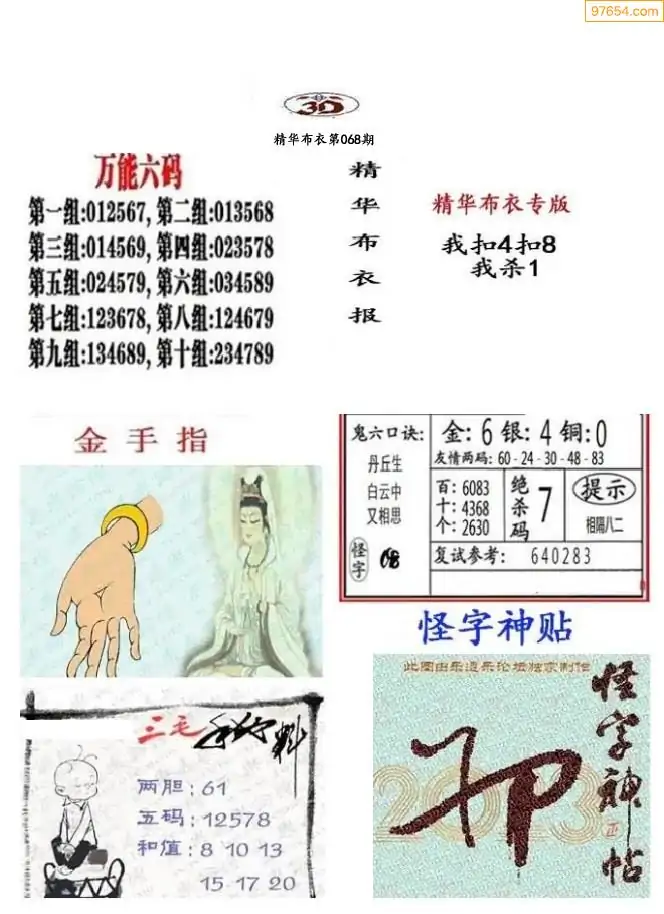 97654.com
3D
精华布衣第068期
万能六码
第一组:012567, 第二组:013568
第三组:014569, 第四组:023578
第五组:024579, 第六组:034589
第七组:123678, 第八组:124679
第九组:134689, 第十组:234789
精华布衣报
精华布衣专版
我扣4扣8
我杀1
金手指
鬼六口诀:
丹丘生
白云中
又相思
怪字
金: 6 银: 4 铜: 0
友情两码: 60-24-30-48-83
百: 6083
十: 4368
个: 2630
绝杀码 7
提示
相隔八二
复试参考: 640283
三毛
料
两胆: 61
五码: 12578
和值: 8 10 13
15 17 20
怪字神贴
此图由乐逍乐论坛独家制作
怪字神帖
2023